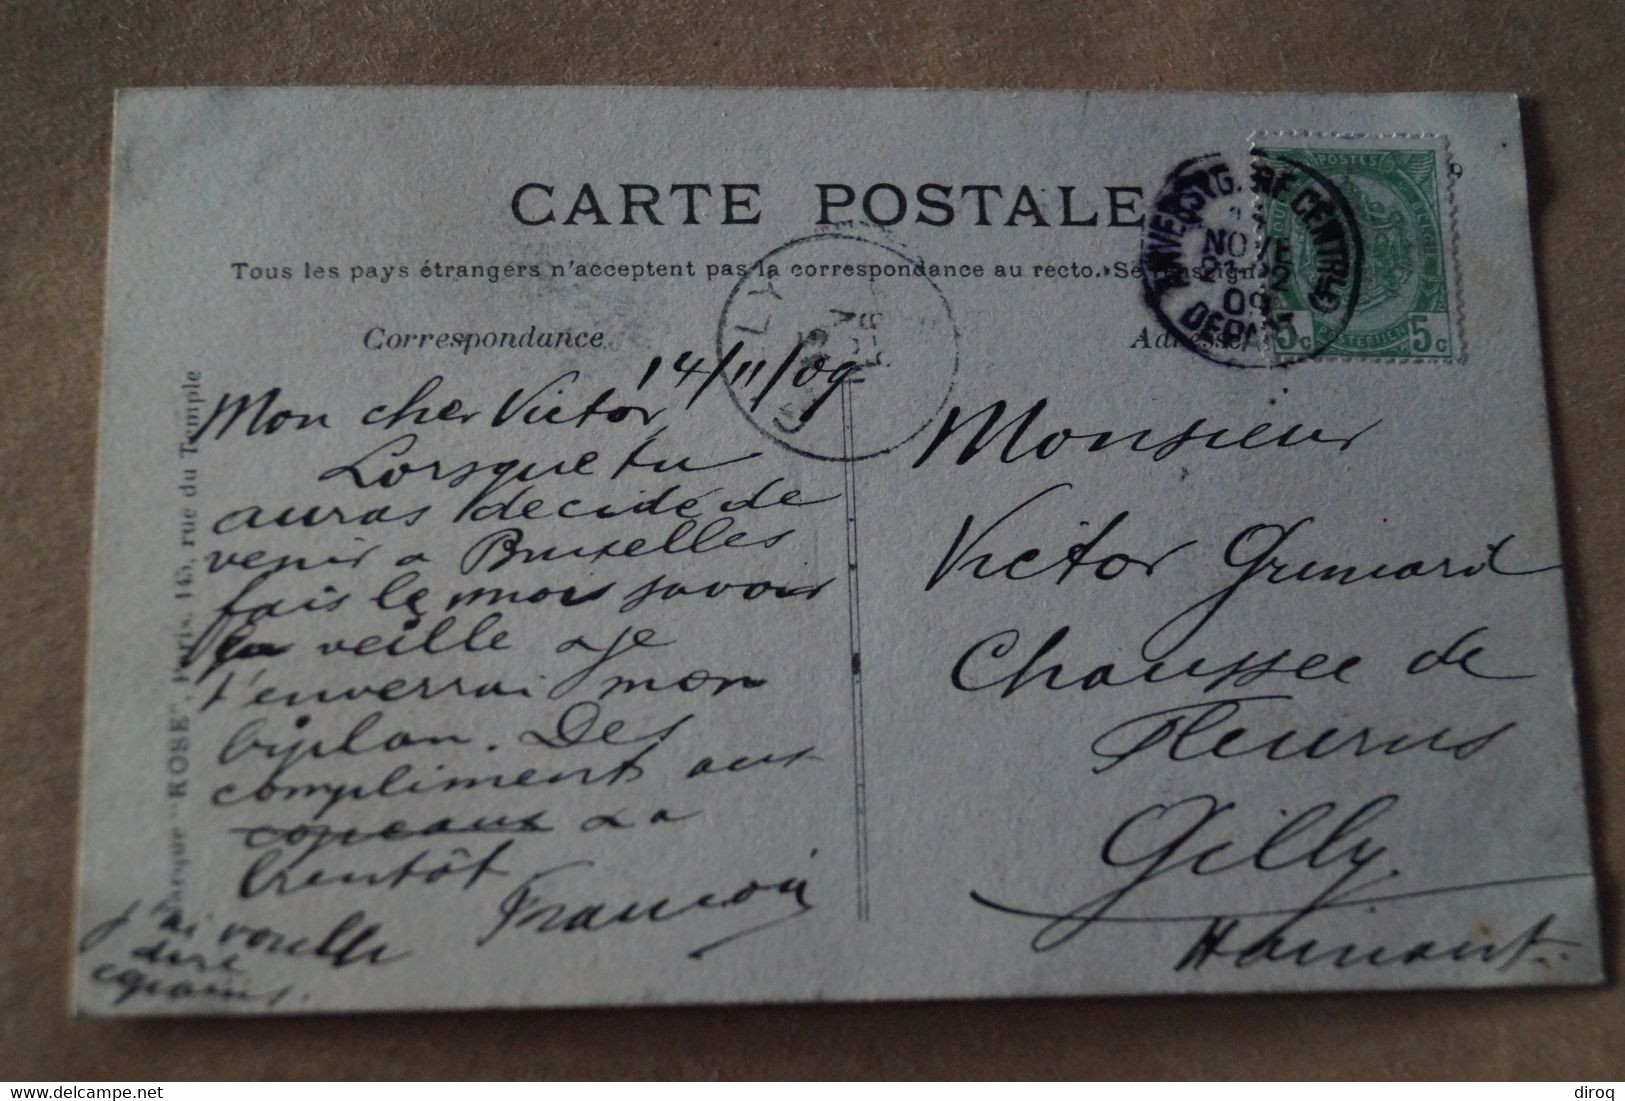 CARTE POSTALE
Tous les pays étrangers n'acceptent pas la correspondance au recto. Se renseign
Correspondance
Adresse
Marque "ROSE", Paris, 145, rue du Temple
POSTES
5c 5c
ANVERS
CENTRALE
NOVE
21-22
09
DEPART
LLY
14/11/09
Mon cher Victor
Lorsque tu
auras décidé de
venir a Bruxelles
fais le moi savoir
la veille & je
t'enverrai mon
biplan. Des
compliments aux
copeaux & a
bientôt
François
j'ai voulu
dire
copains.
Monsieur
Victor Grimard
Chaussee de
Fleurus
Gilly.
Hainaut.
diroq